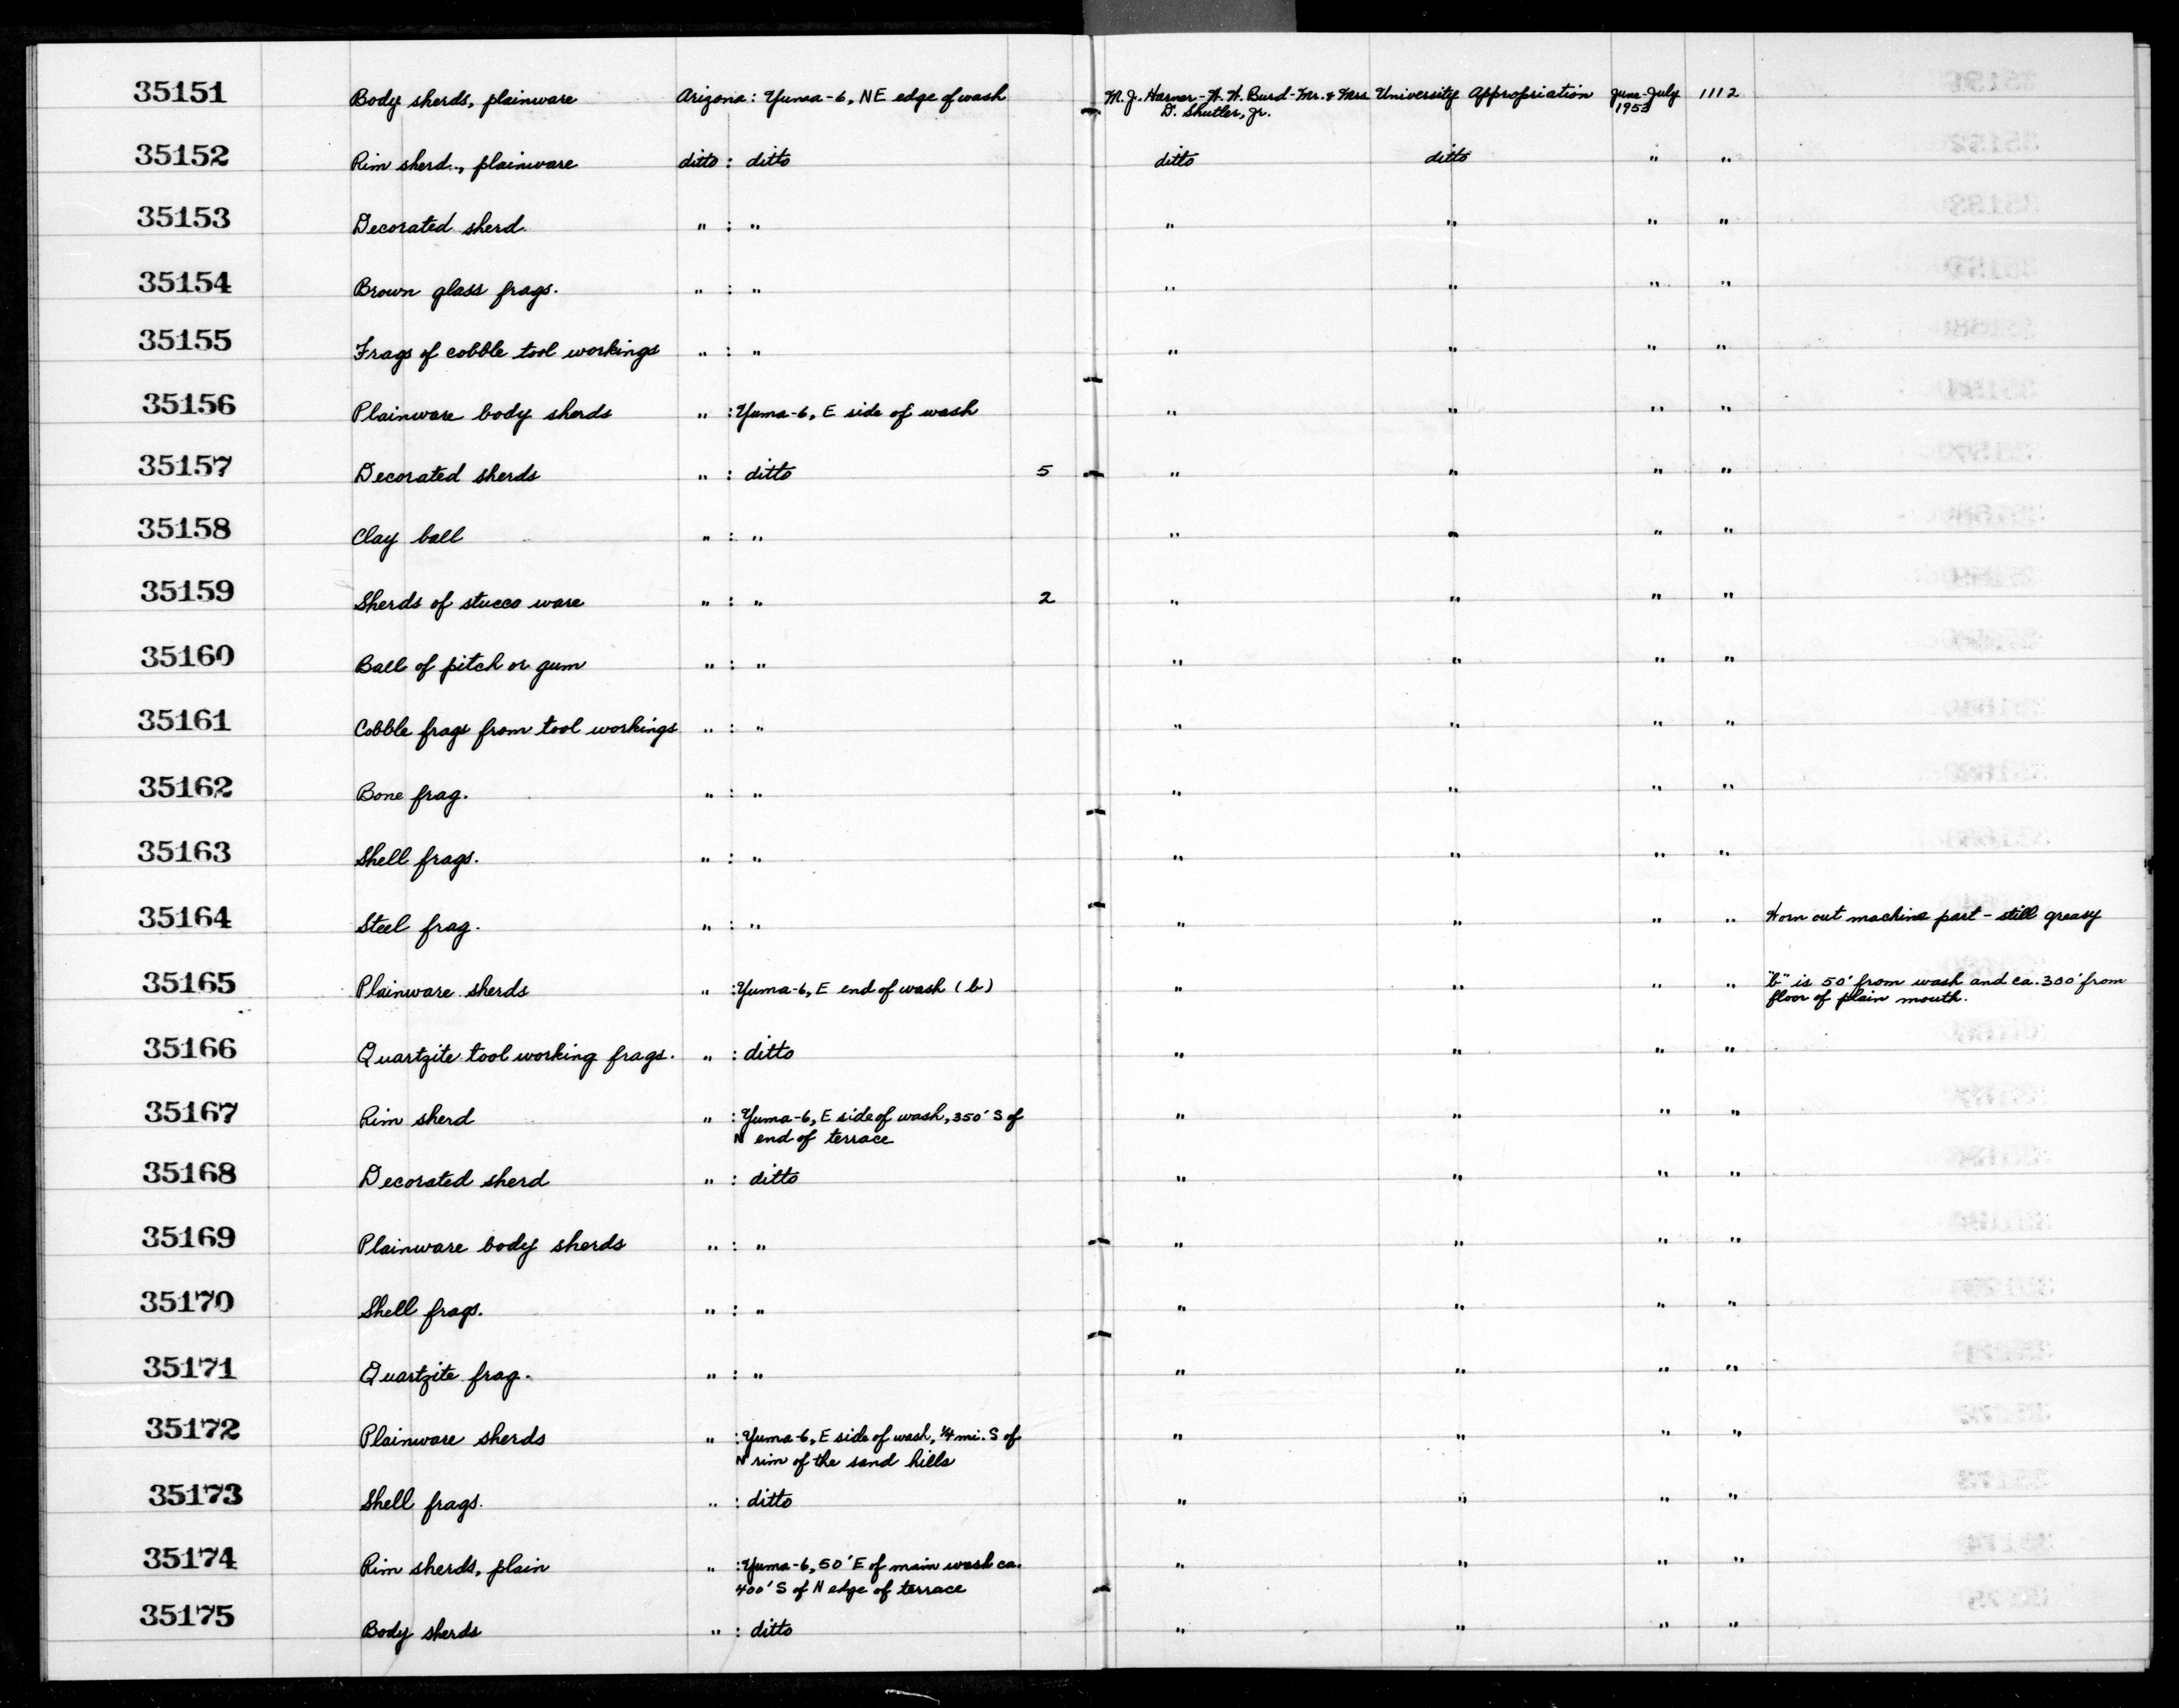 35151 Body sherds, plainware Arizona: Yuma-6, NE edge of wash M. J. Harner - W. W. Burd - Mr. & Mrs University Appropriation June-July 1112
D. Shutler, Jr. 1953
35152 Rim sherd.., plainware ditto : ditto ditto ditto " "
35153 Decorated sherd. " : " " " " "
35154 Brown glass frags. " : " " " " "
35155 Frags of cobble tool workings " : " " " " "
35156 Plainware body sherds " : Yuma-6, E side of wash " " " "
35157 Decorated sherds " : ditto 5 " " " "
35158 Clay ball " : " " " " "
35159 Sherds of stucco ware " : " 2 " " " "
35160 Ball of pitch or gum " : " " " " "
35161 Cobble frags from tool workings " : " " " " "
35162 Bone frag. " : " " " " "
35163 Shell frags. " : " " " " "
35164 Steel frag. " : " " " " " Worn out machine part - still greasy
35165 Plainware sherds " : Yuma-6, E end of wash (b) " " " " "b" is 50' from wash and ca. 300' from
floor of plain mouth.
35166 Quartzite tool working frags. " : ditto " " " "
35167 Rim sherd " : Yuma-6, E side of wash, 350' S of " " " "
N end of terrace
35168 Decorated sherd " : ditto " " " "
35169 Plainware body sherds " : " " " " "
35170 Shell frags. " : " " " " "
35171 Quartzite frag. " : " " " " "
35172 Plainware sherds " : Yuma-6, E side of wash, 1/4 mi. S of " " " "
N rim of the sand hills
35173 Shell frags. " : ditto " " " "
35174 Rim sherds, plain " : Yuma-6, 50' E of main wash ca. " " " "
400' S of N edge of terrace
35175 Body sherds " : ditto " " " "